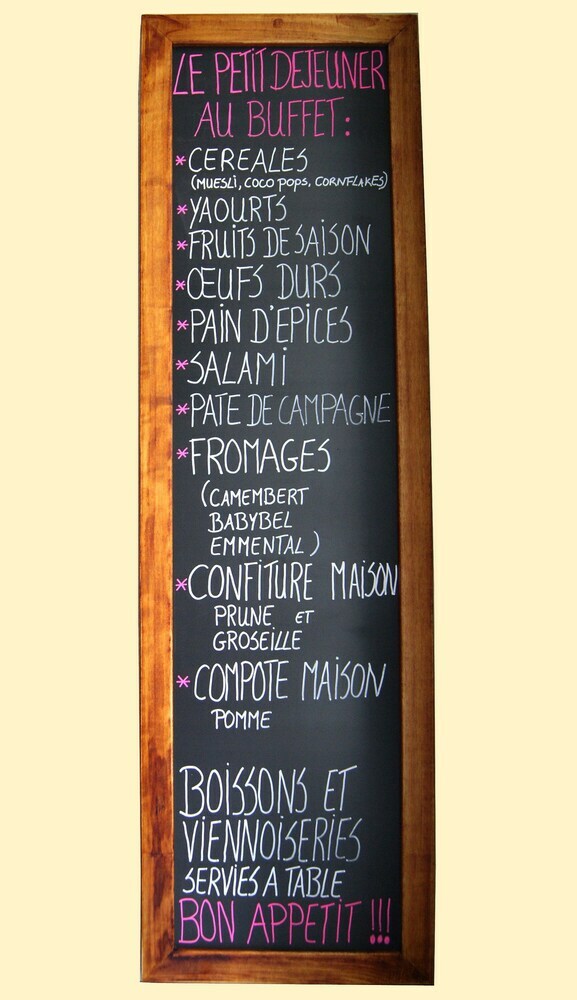 LE PETIT DEJEUNER
AU BUFFET :
* CEREALES
(MUESLI, COCO POPS, CORNFLAKES)
* YAOURTS
* FRUITS DE SAISON
* ŒUFS DURS
* PAIN D'EPICES
* SALAMI
* PATE DE CAMPAGNE
* FROMAGES
(CAMEMBERT
BABYBEL
EMMENTAL)
* CONFITURE MAISON
PRUNE ET
GROSEILLE
* COMPOTE MAISON
POMME
BOISSONS ET
VIENNOISERIES
SERVIES A TABLE
BON APPETIT !!!